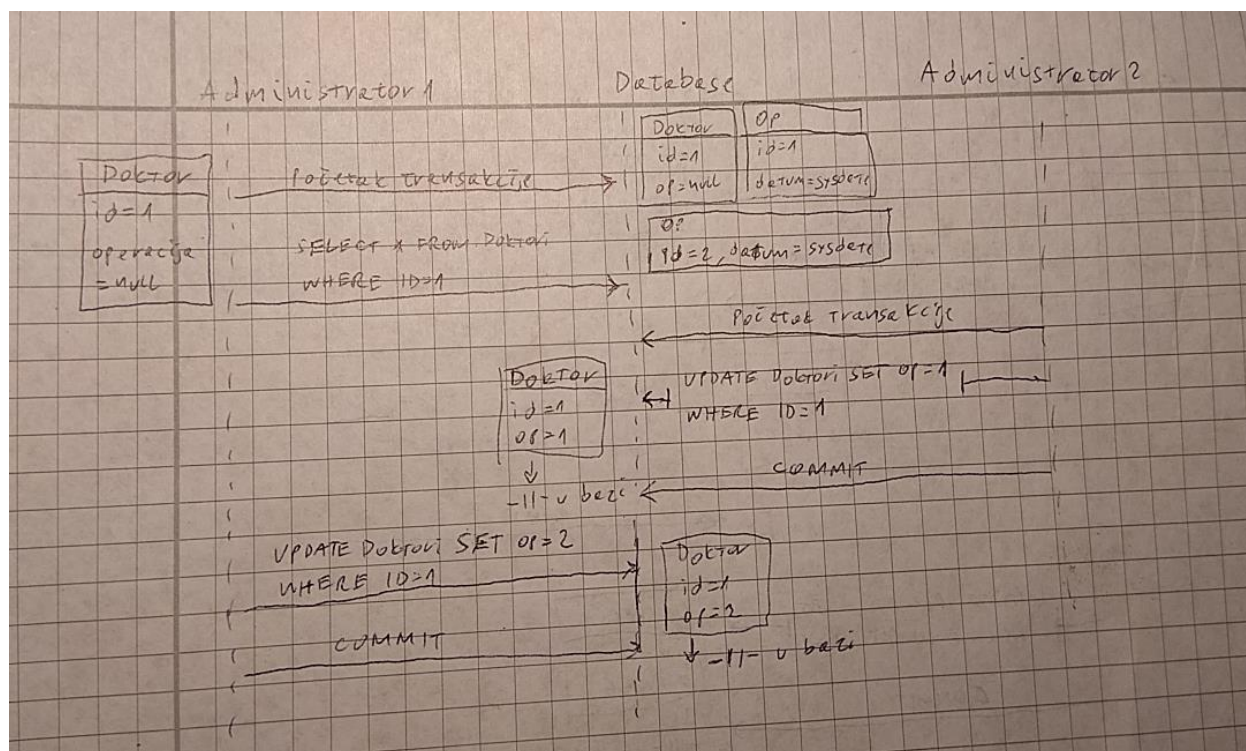 Administrator 1
Database
Administrator 2
Doktor
id=1
operacija
= null
Početak transakcije
SELECT * FROM Doktori
WHERE ID=1
Doktor
id=1
op=null
OP
id=1
datum=sysdate
OP
id=2, datum=sysdate
Početak transakcije
UPDATE Doktori SET op=1
WHERE ID=1
Doktor
id=1
op=1
-11- u bazi
COMMIT
UPDATE Doktori SET op=2
WHERE ID=1
Doktor
id=1
op=2
-11- u bazi
COMMIT